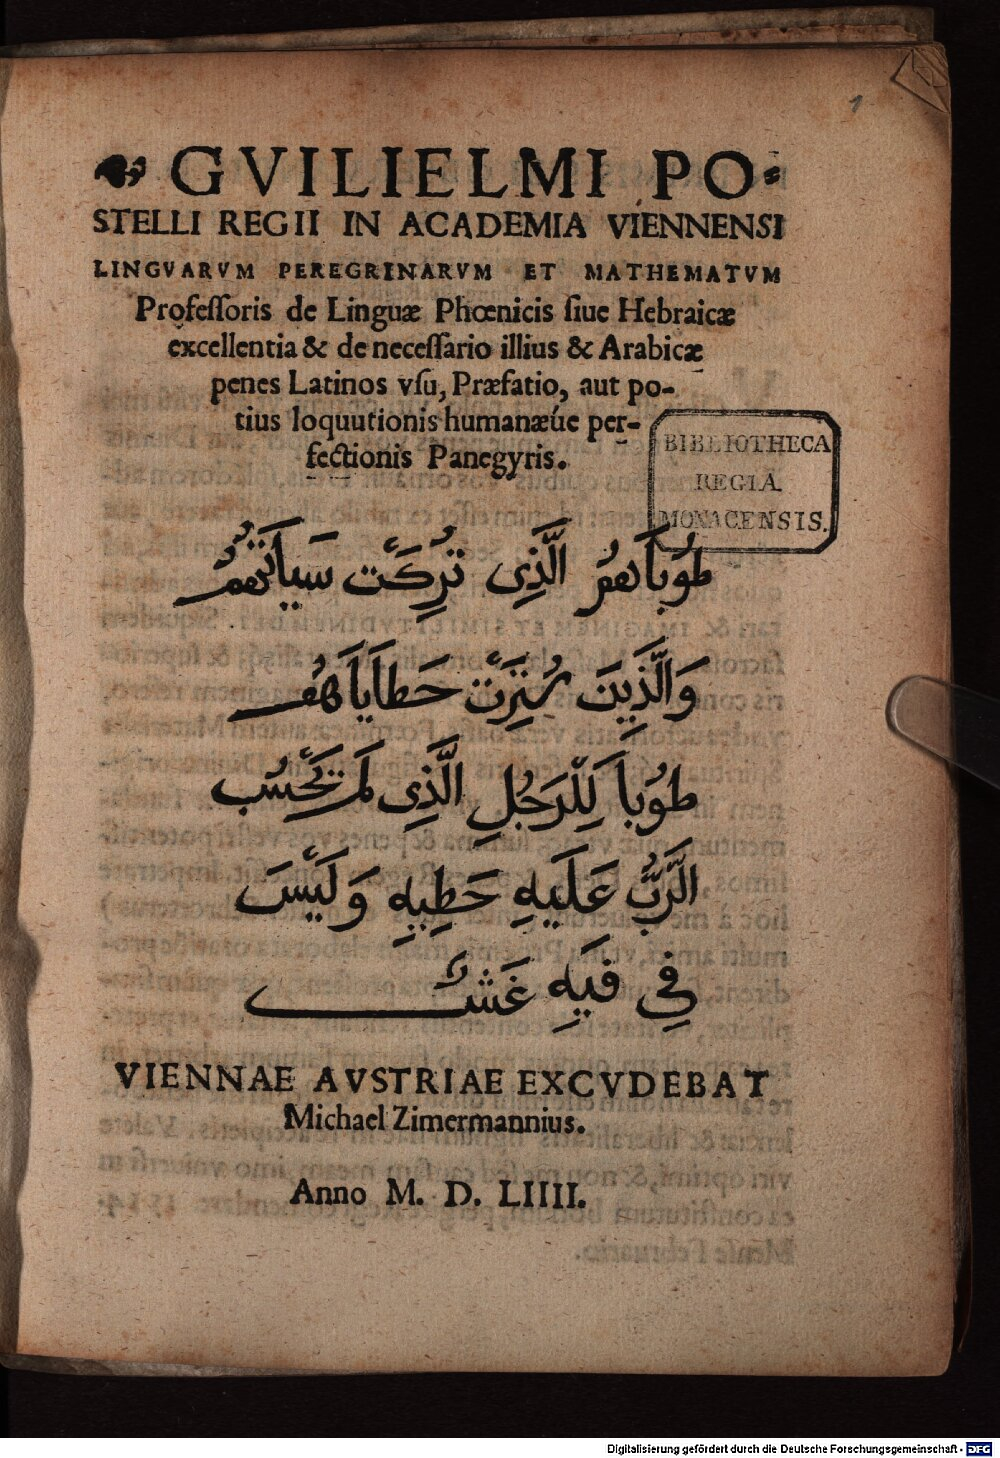 1
GVILIELMI PO-
STELLI REGII IN ACADEMIA VIENNENSI
LINGVARVM PEREGRINARVM ET MATHEMATVM
Profeſſoris de Linguæ Phœnicis ſiue Hebraicæ
excellentia & de neceſſario illius & Arabicæ
penes Latinos vſu, Præfatio, aut po-
tius loquutionis humanæúe per-
fectionis Panegyris.
BIBLIOTHECA
REGIA
MONACENSIS.
طُوُبَاَهمُ الَّذِى تُرِكَتْ سَيأَتَهُمُ
وَالَّذِينَ سُتِرَتْ خَطاَياَهُمْ
طوُباَ لِلْرَجُلِ الَّذِى لَمْ يَحْسُب
الَرَّبُّ عَلَيهِ خَطِيهِ وَلَيْسَ
فِي فَيهِ غَشك
VIENNAE AVSTRIAE EXCVDEBAT
Michael Zimermannius.
Anno M. D. LIIII.
Digitalisierung gefördert durch die Deutsche Forschungsgemeinschaft - DFG